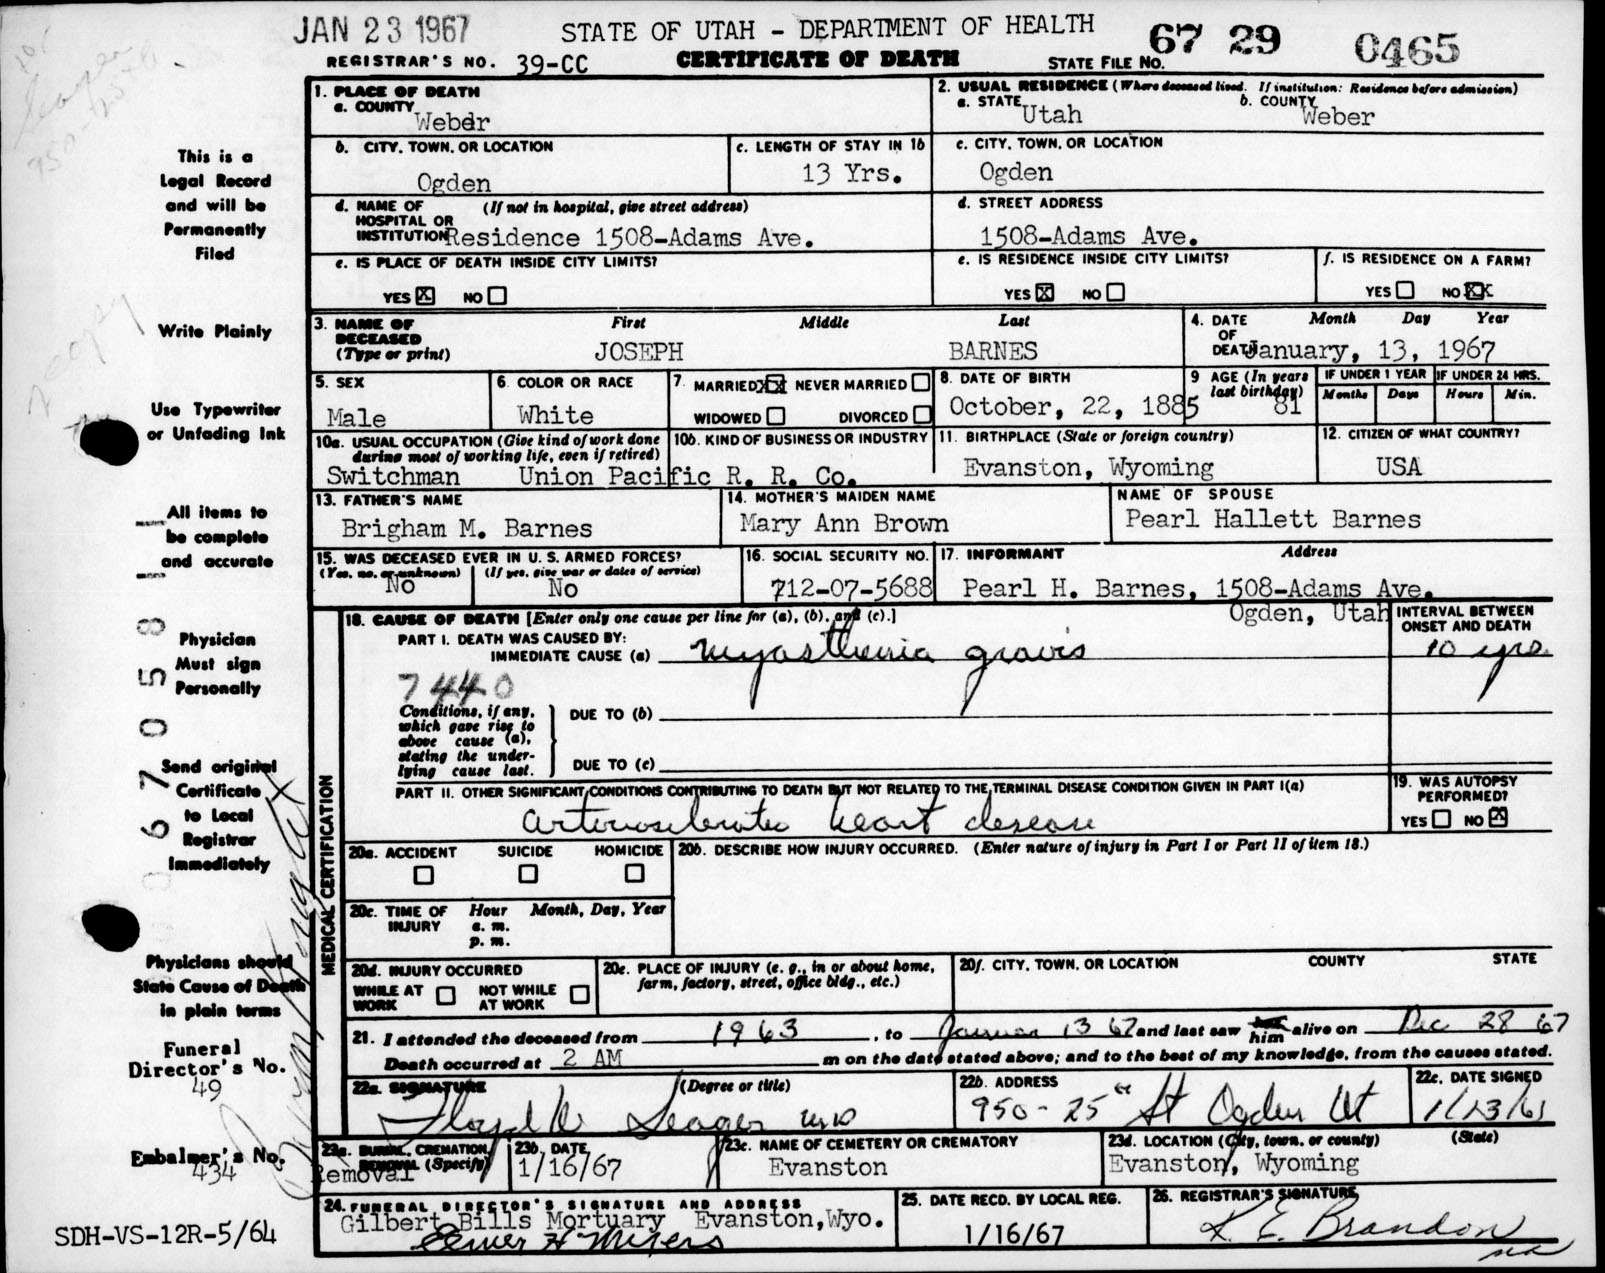 JAN 23 1967
STATE OF UTAH - DEPARTMENT OF HEALTH
67 29 0465
REGISTRAR'S NO. 39-CC
CERTIFICATE OF DEATH
STATE FILE NO.
1. PLACE OF DEATH
a. COUNTY
Weber
2. USUAL RESIDENCE (Where deceased lived. If institution: Residence before admission)
a. STATE Utah
b. COUNTY Weber
b. CITY, TOWN, OR LOCATION
Ogden
c. LENGTH OF STAY IN 1b
13 Yrs.
c. CITY, TOWN, OR LOCATION
Ogden
d. NAME OF HOSPITAL OR INSTITUTION (If not in hospital, give street address)
Residence 1508-Adams Ave.
d. STREET ADDRESS
1508-Adams Ave.
e. IS PLACE OF DEATH INSIDE CITY LIMITS?
YES X NO
e. IS RESIDENCE INSIDE CITY LIMITS?
YES X NO
f. IS RESIDENCE ON A FARM?
YES NO XX
3. NAME OF DECEASED (Type or print)
First Middle Last
JOSEPH BARNES
4. DATE OF DEATH
Month Day Year
January, 13, 1967
5. SEX
Male
6. COLOR OR RACE
White
7. MARRIED XX NEVER MARRIED
WIDOWED DIVORCED
8. DATE OF BIRTH
October, 22, 1885
9 AGE (In years last birthday)
81
IF UNDER 1 YEAR
Months Days
IF UNDER 24 HRS.
Hours Min.
10a. USUAL OCCUPATION (Give kind of work done during most of working life, even if retired)
Switchman
10b. KIND OF BUSINESS OR INDUSTRY
Union Pacific R. R. Co.
11. BIRTHPLACE (State or foreign country)
Evanston, Wyoming
12. CITIZEN OF WHAT COUNTRY?
USA
13. FATHER'S NAME
Brigham M. Barnes
14. MOTHER'S MAIDEN NAME
Mary Ann Brown
NAME OF SPOUSE
Pearl Hallett Barnes
15. WAS DECEASED EVER IN U. S. ARMED FORCES?
(Yes, no, or unknown) (If yes, give war or dates of service)
No No
16. SOCIAL SECURITY NO.
712-07-5688
17. INFORMANT Address
Pearl H. Barnes, 1508-Adams Ave.
Ogden, Utah
18. CAUSE OF DEATH [Enter only one cause per line for (a), (b), and (c).]
INTERVAL BETWEEN ONSET AND DEATH
PART I. DEATH WAS CAUSED BY:
IMMEDIATE CAUSE (a) myasthenia gravis
10 yrs
7440
Conditions, if any, which gave rise to above cause (a), stating the underlying cause last.
DUE TO (b)
DUE TO (c)
PART II. OTHER SIGNIFICANT CONDITIONS CONTRIBUTING TO DEATH BUT NOT RELATED TO THE TERMINAL DISEASE CONDITION GIVEN IN PART I(a)
arteriosclerotic heart disease
19. WAS AUTOPSY PERFORMED?
YES NO X
20a. ACCIDENT SUICIDE HOMICIDE
20b. DESCRIBE HOW INJURY OCCURRED. (Enter nature of injury in Part I or Part II of item 18.)
20c. TIME OF INJURY
Hour Month, Day, Year
a. m.
p. m.
20d. INJURY OCCURRED
WHILE AT WORK NOT WHILE AT WORK
20e. PLACE OF INJURY (e. g., in or about home, farm, factory, street, office bldg., etc.)
20f. CITY, TOWN, OR LOCATION COUNTY STATE
21. I attended the deceased from 1963, to January 13 67 and last saw him alive on Dec 28 67
Death occurred at 2 AM m on the date stated above; and to the best of my knowledge, from the causes stated.
22a. SIGNATURE (Degree or title)
Floyd W Seager MD
22b. ADDRESS
950-25th St Ogden Ut
22c. DATE SIGNED
23a. BURIAL, CREMATION, REMOVAL (Specify)
Removal
23b. DATE
1/16/67
23c. NAME OF CEMETERY OR CREMATORY
Evanston
23d. LOCATION (City, town, or county) (State)
Evanston, Wyoming
24. FUNERAL DIRECTOR'S SIGNATURE AND ADDRESS
Gilbert Bills Mortuary Evanston, Wyo.
Elmer H Myers
25. DATE RECD. BY LOCAL REG.
1/16/67
26. REGISTRAR'S SIGNATURE
K. E. Brandon
MEDICAL CERTIFICATION
This is a
Legal Record
and will be
Permanently
Filed
Write Plainly
Use Typewriter
or Unfading Ink
All items to
be complete
and accurate
Physician
Must sign
Personally
Send original
Certificate
to Local
Registrar
Immediately
Physicians should
State Cause of Death
in plain terms
Funeral
Director's No.
49
Embalmer's No.
434
SDH-VS-12R-5/64